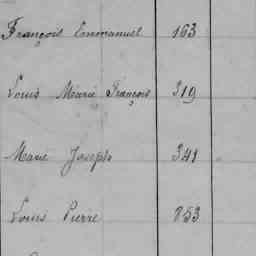 François Emmanuel 163
Louis Marie François 319
Marie Joseph 341
Louis Pierre 853